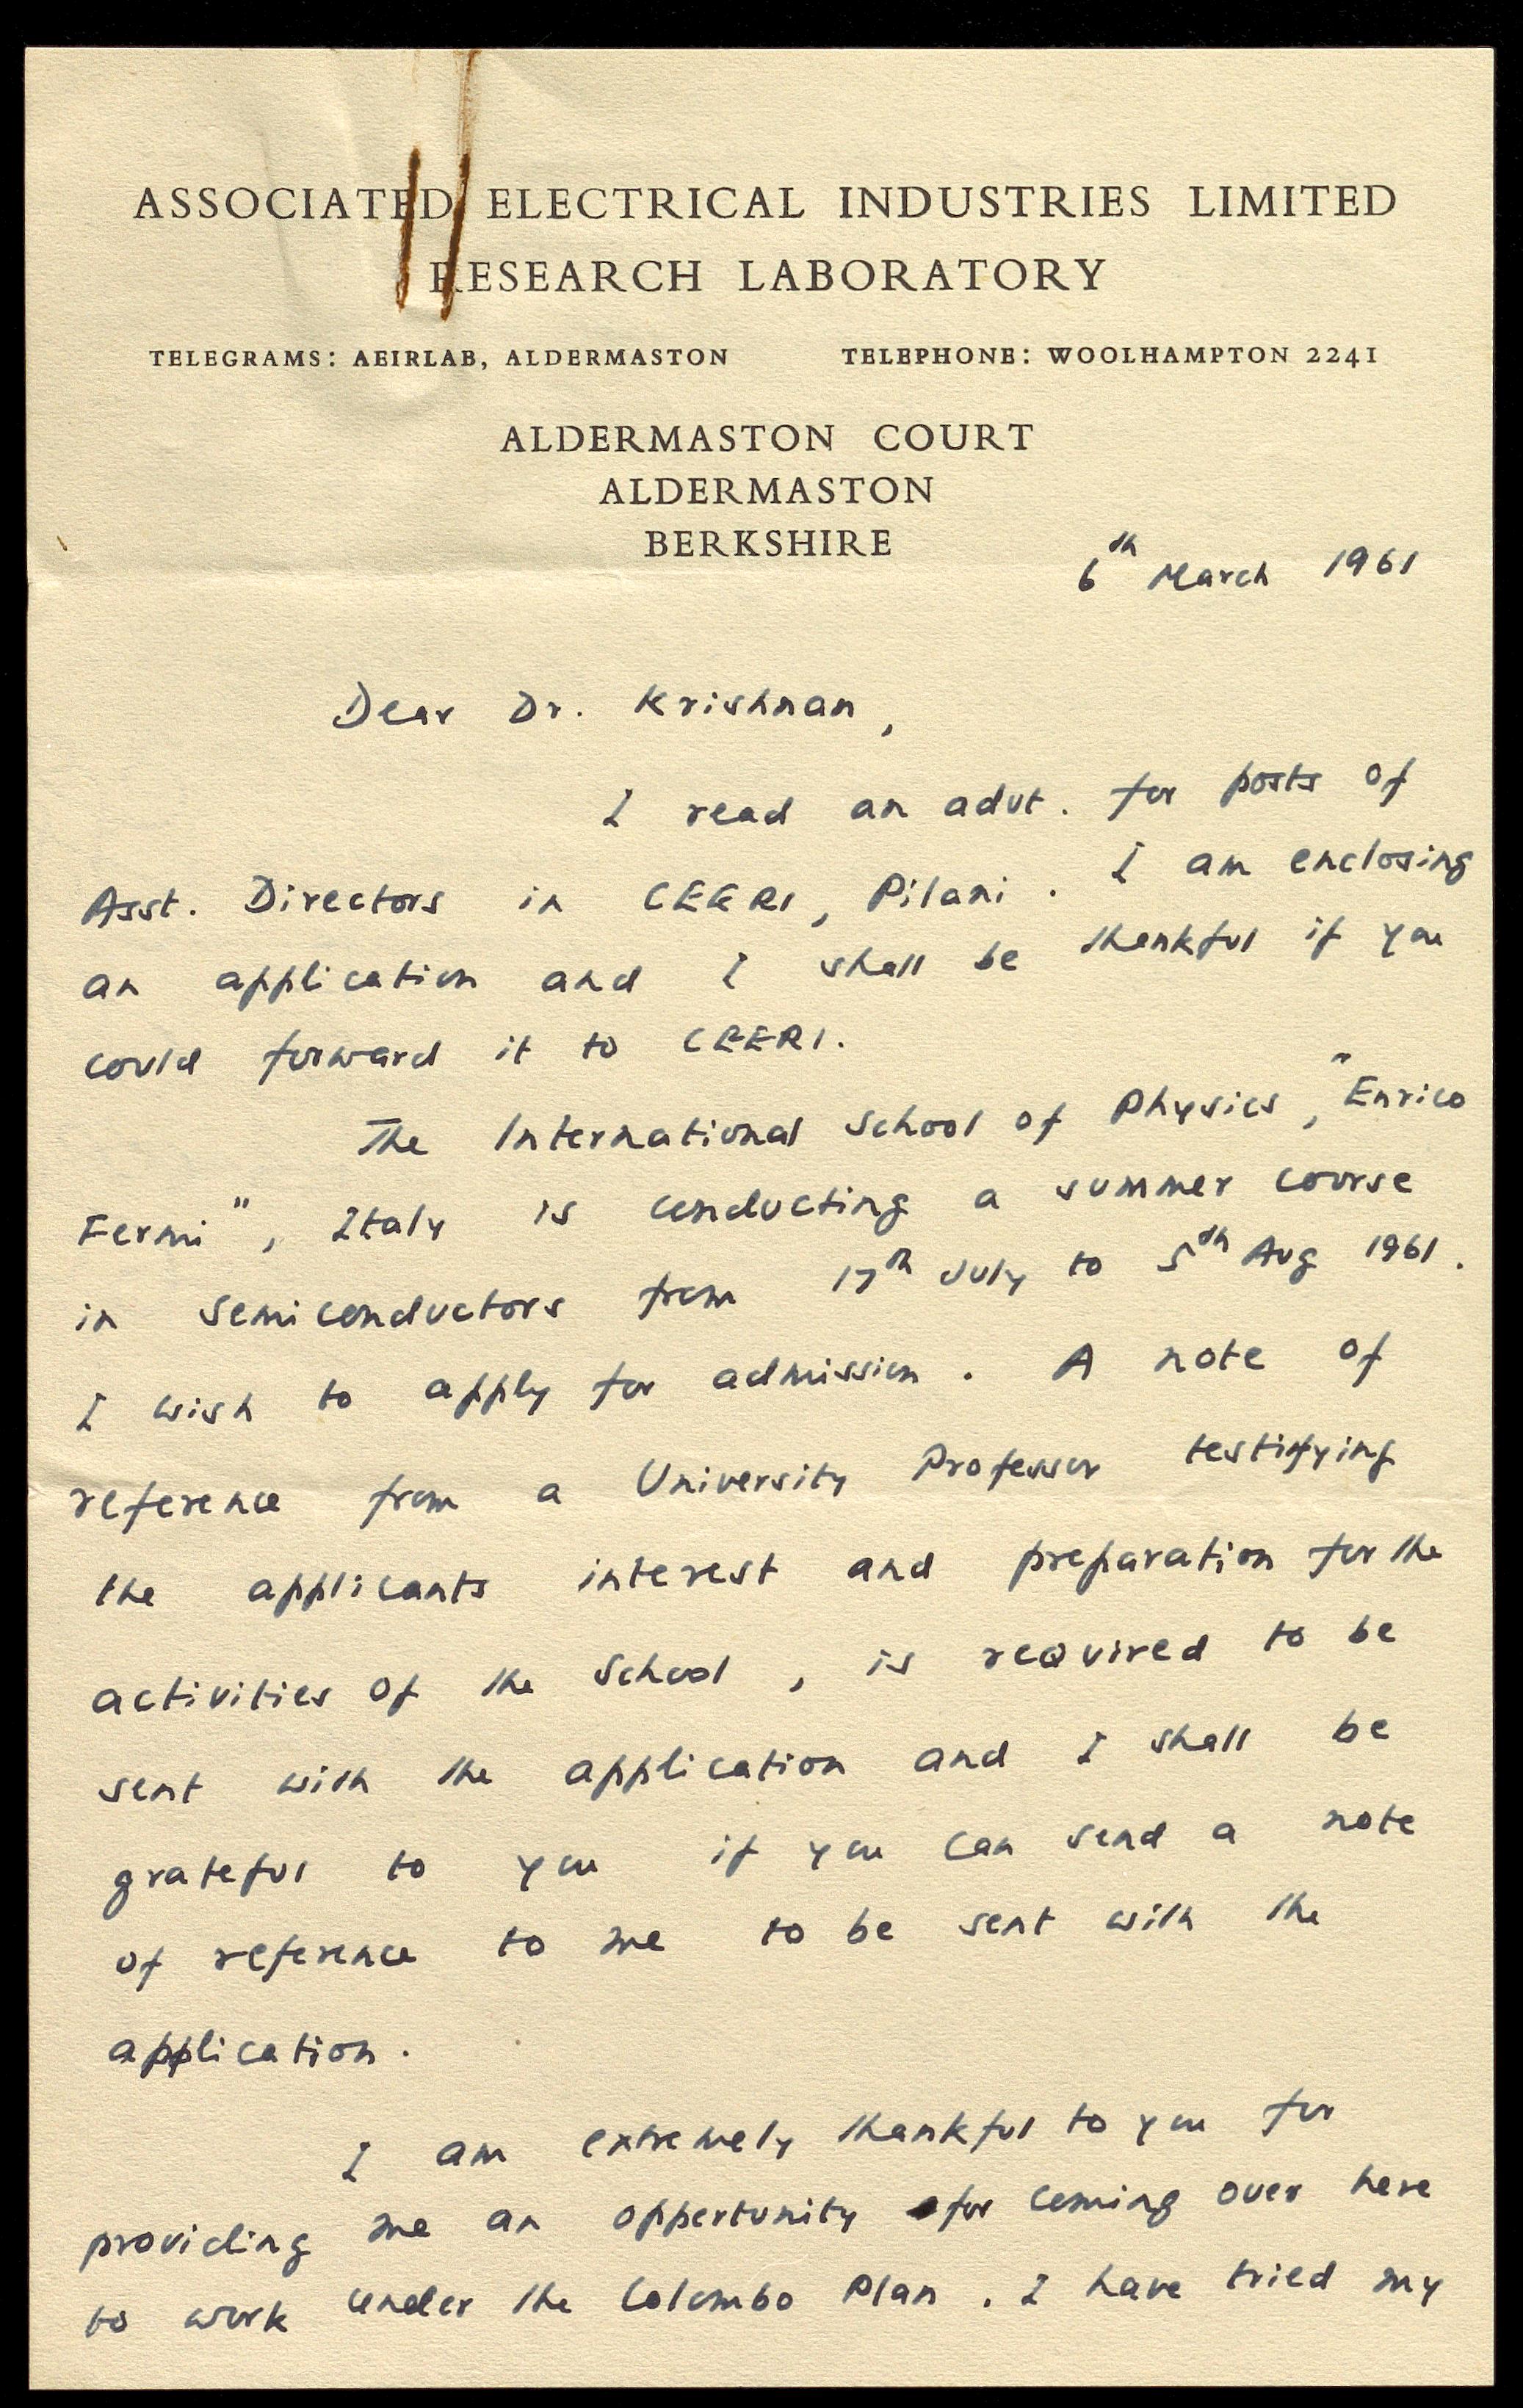 ASSOCIATED ELECTRICAL INDUSTRIES LIMITED
RESEARCH LABORATORY
TELEGRAMS: AEIRLAB, ALDERMASTON TELEPHONE: WOOLHAMPTON 2241
ALDERMASTON COURT
ALDERMASTON
BERKSHIRE
6th March 1961
Dear Dr. Krishnan,
I read an advt. for posts of
Asst. Directors in CEERI, Pilani. I am enclosing
an application and I shall be thankful if you
could forward it to CEERI.
The International School of Physics, "Enrico
Fermi", Italy is conducting a summer course
in semiconductors from 17th July to 5th Aug 1961.
I wish to apply for admission. A note of
reference from a University Professor testifying
the applicants interest and preparation for the
activities of the School, is required to be
sent with the application and I shall be
grateful to you if you can send a note
of reference to me to be sent with the
application.
I am extremely thankful to you for
providing me an opportunity for coming over here
to work under the Colombo Plan. I have tried my